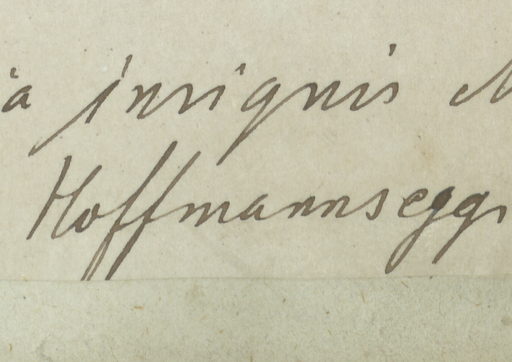 ia insignis M
Hoffmannsegg